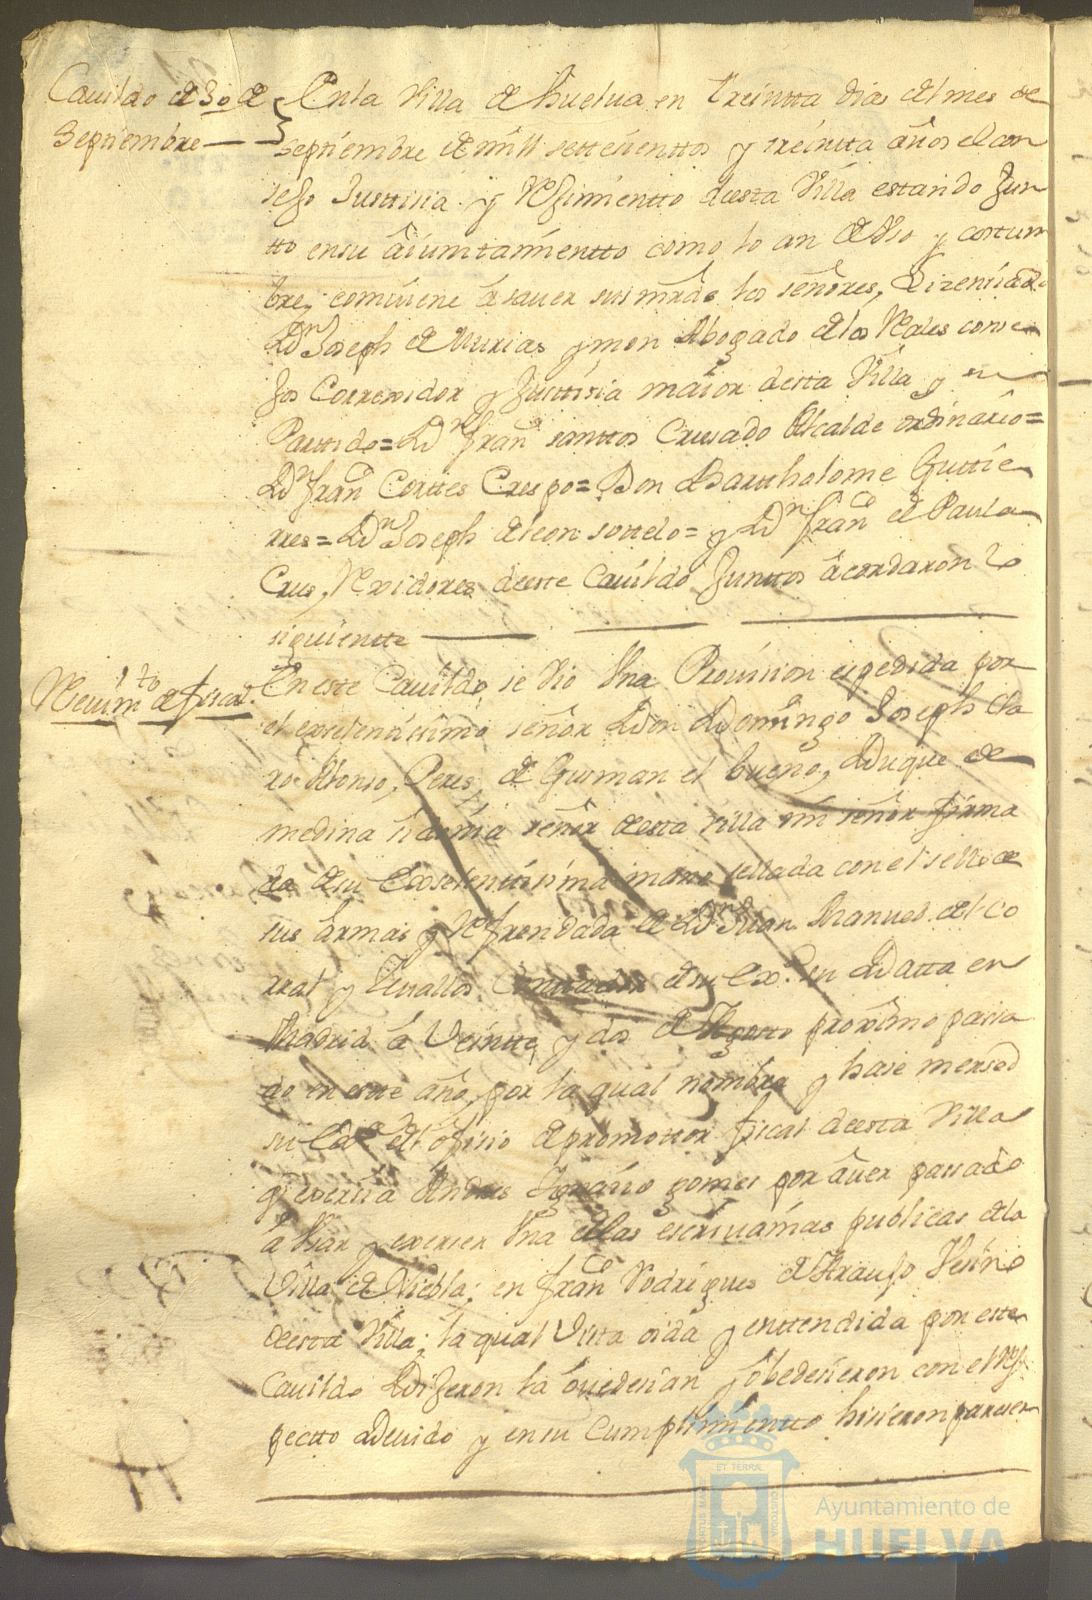 Cauildo de 30 de
Septiembre
En la Villa de Huelua en treintta dias del mes de
septiembre de mill settesienttos y treintta años el con
sejo Justtisia y Rejimientto desta Villa estando Jun
tto en su aiunttamientto como lo an de Vso y costum
bre, combiene á sauer sus mrds. los señores, Lizenciado
Dn Joseph de Murias ymon Abogado de los Rales conse
jos Correxidor y Justtisia maior desta Villa y su
Parttido= Dn Franco santtos Crusado Alcalde ordinario=
Dn Franco Corttes Crespo= Don Bartholome Guttie
rres= Dn Joseph de leon sottelo= y Dn Franco de Paula
Crus, Rexidores deeste Cauildo Junttos acordaron lo
siguientte
Reciuimto de fiscal.
En este Cauildo, se vio Vna Prouision espedida por
el exselentisimo señor Don Domingo Joseph Cla
ros Alonso, Peres, de Gusman el bueno, Duque de
medina sidonia señor desta Villa mi señor firma
da de su Exselentisima mano sellada con el sello de
sus armas y Refrendada de Dn Juan Manuel del Co
rral y Seuallos de su Exa. su Datta en
Madrid á Veintte, y dos de Agosto proximo passa
do en este año, por la qual nombra y hase mersed
su Exa. del ofisio de promottor fiscal deesta Villa
q exersia Andres Ygnasio gomes por auer passado
á Vsar y exerser Vna de las escriuanias publicas de la
Villa de Niebla; en Franco Rodrigues de Araujo Vesino
deesta Villa; la qual Vista oida y enttendida por este
Cauildo Dijeron la ouedesian y obedesieron con el Res
pecto Deuido y en su Cumplimientto hisieron pareser
ET TERRAE
CUSTODIA
Ayuntamiento de
HUELVA